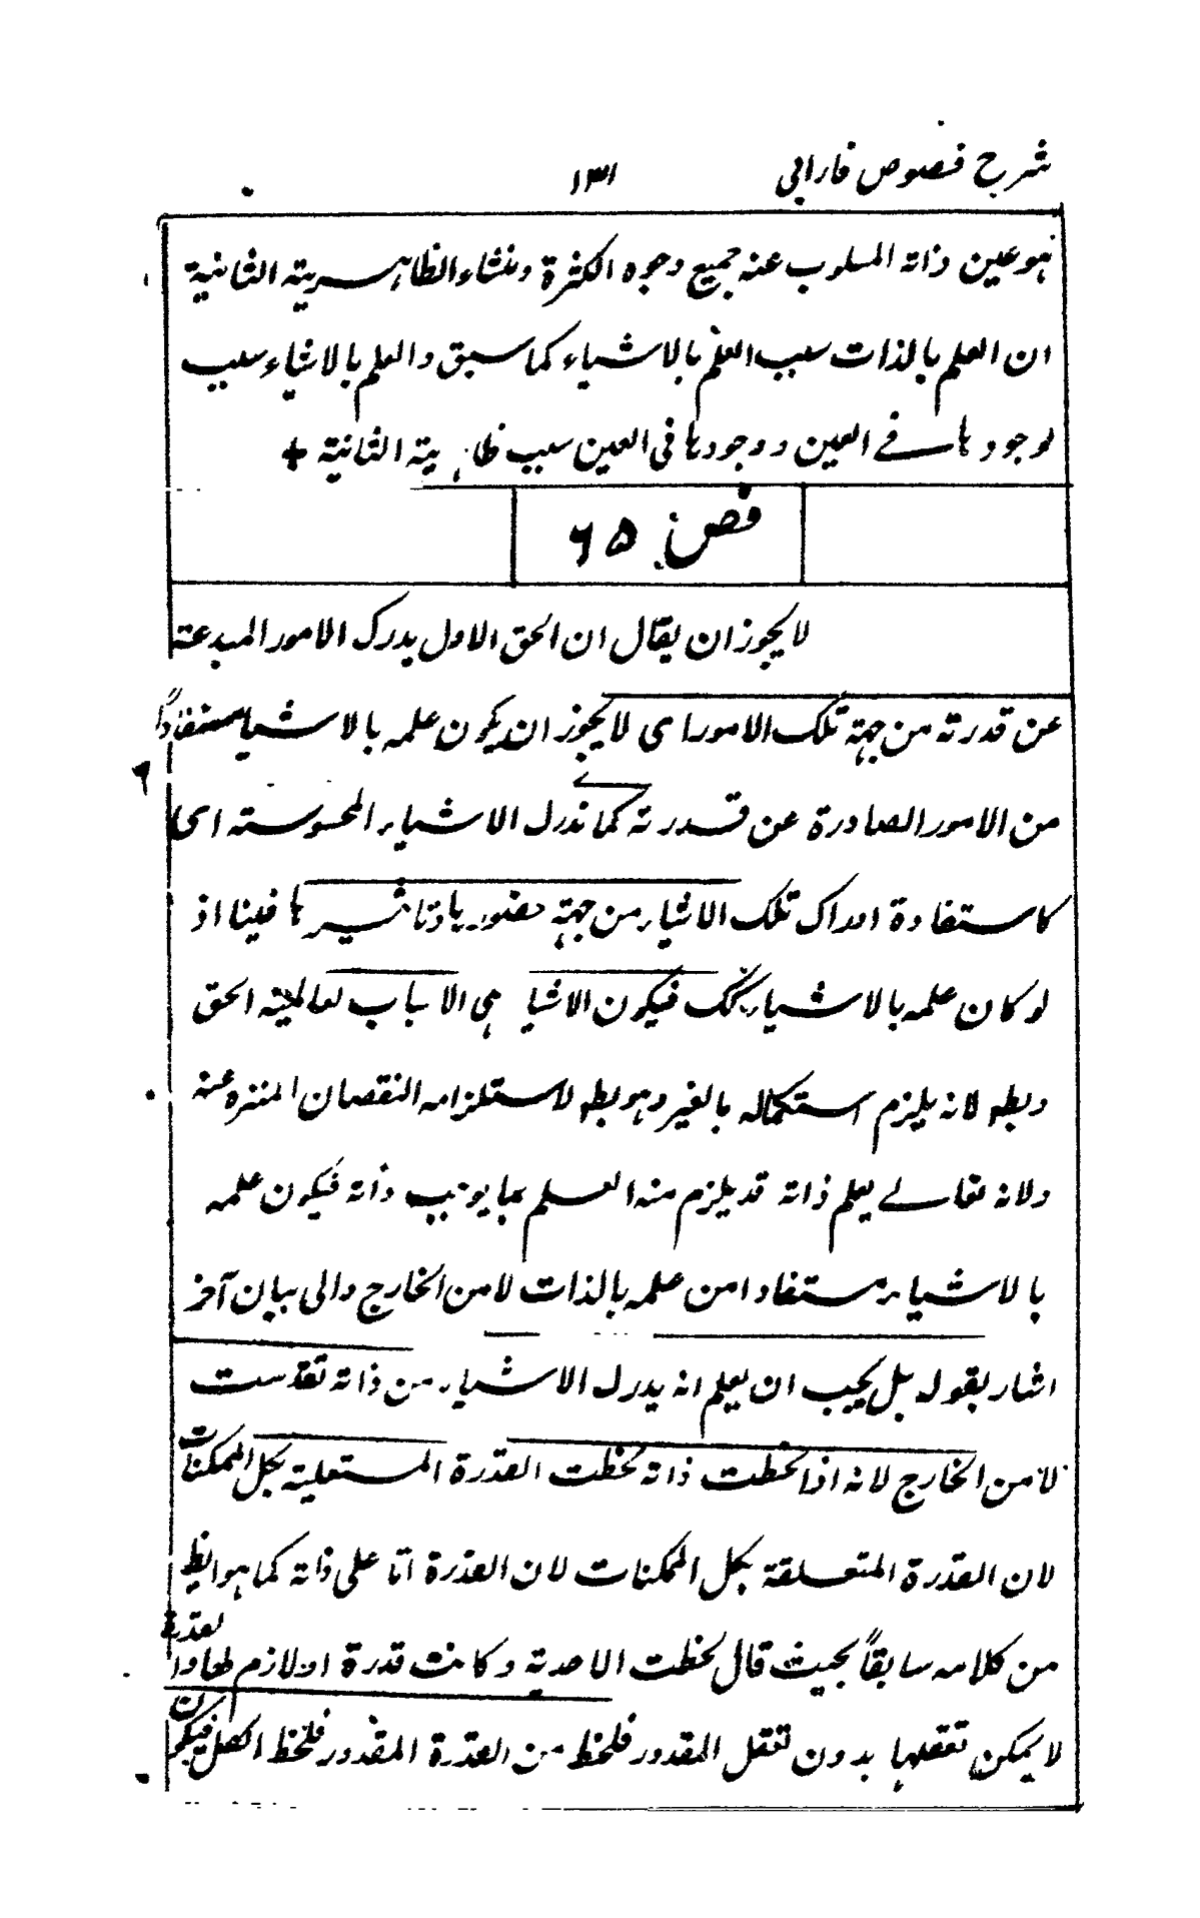 شرح فصوص فارابی ۱۳۱
فهو عين ذاته المسلوب عنه جميع وجوه الكثرة ومنشاء الظاهرية الثانية
ان العلم بالذات سبب العلم بالاشياء كما سبق والعلم بالاشياء سبب
لوجودها فى العين ووجودها فى العين سبب ظاهرية الثانية +
فص ۶۵
لا يجوز ان يقال ان الحق الاول يدرك الامور المبدعة
عن قدرته من جهة تلك الامور اى لا يجوز ان يكون علمه بالاشياء مستفادا
من الامور الصادرة عن قدرته كما ندرك الاشياء المحسوسة اى
كاستفادة ادراك تلك الاشياء من جهة حضورها وتاثيرها فينا اذ
لو كان علمه بالاشياء كك فيكون الاشياء هى الاسباب لعالمية الحق
وبطه لانه يلزم استكماله بالغير وهو بطه لاستلزامه النقصان المنزه عنه
ولانه تعالے يعلم ذاته قد يلزم منه العلم بما يوجب ذاته فيكون علمه
بالاشياء مستفادا من علمه بالذات لا من الخارج والى بيان آخر
اشار بقوله بل يجب ان يعلم انه يدرك الاشياء من ذاته تقدست
لا من الخارج لانه اذا لحظت ذاته لحظت القدرة المستعلية بكل الممكنات
لان القدرة المتعلقة بكل الممكنات لان القدرة اما على ذاته كما هو ايظ
من كلامه سابقاً بحيث قال لحظت الاحدية وكانت قدرة او لازم لها والقدرة
لا يمكن تعقلها بدون تعقل المقدور فلحظ من القدرة المقدور فلحظ الكل فيكون